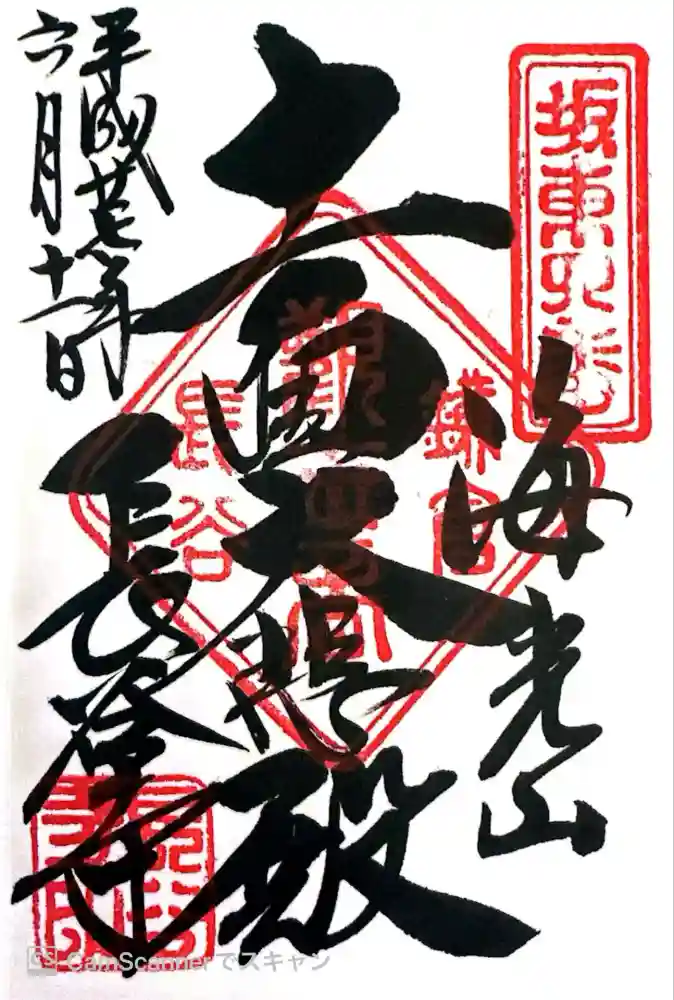 坂東四番
海光山
十一面大悲殿
長谷寺
平成廿七年
六月十一日
鎌倉
觀世音
長谷
CS CamScannerでスキャン